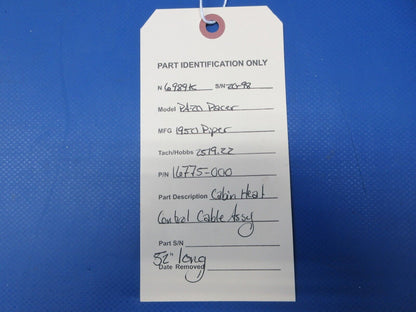 PART IDENTIFICATION ONLY
N 6989K S/N 20-98
Model PA20 Pacer
MFG 1950 Piper
Tach/Hobbs 2519.22
P/N 16775-000
Part Description Cabin Heat
Control Cable Assy
Part S/N
52" long
Date Removed